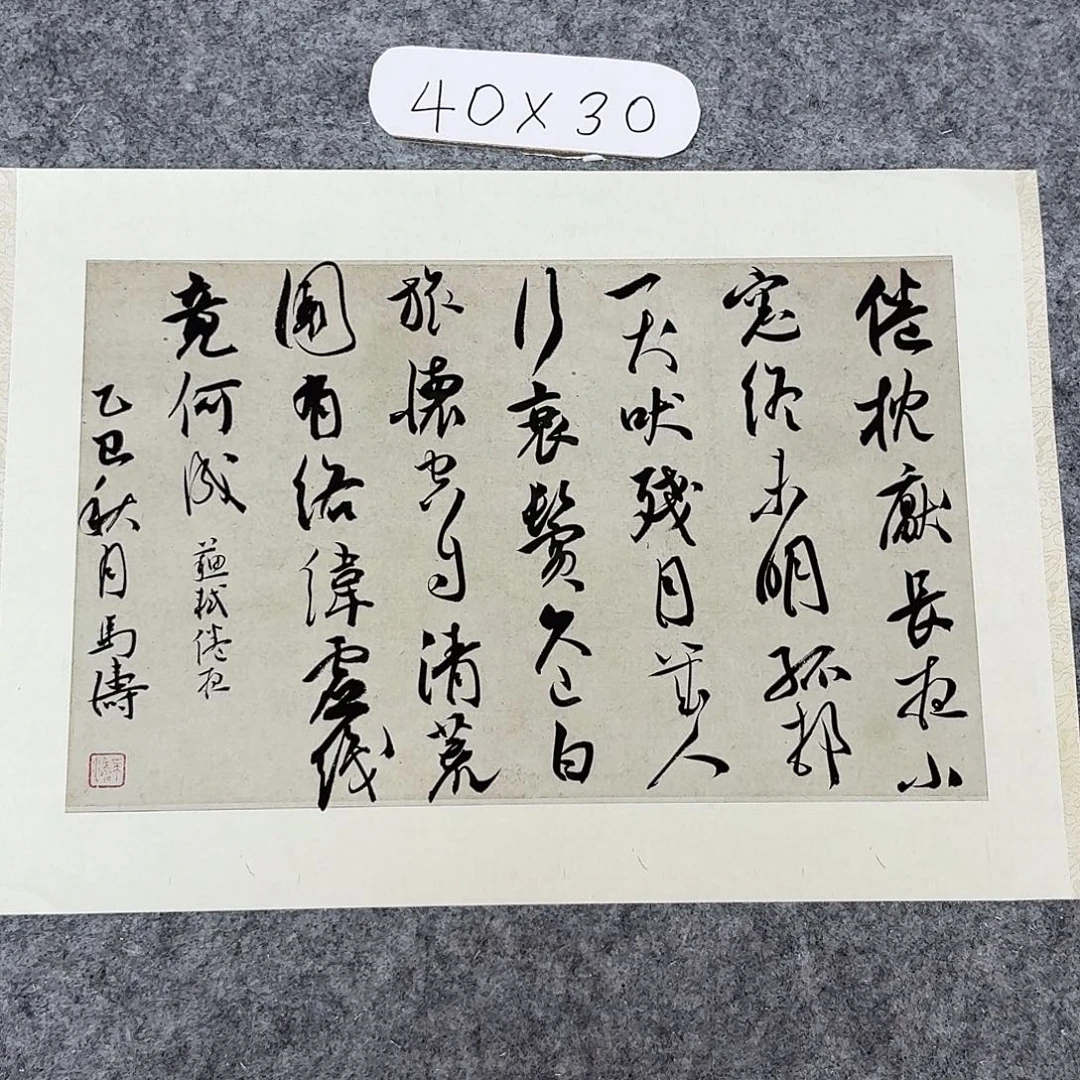 40X30
倦枕厭長夜小
窓終未明孤邨
一犬吠殘月幾人
行衰鬢久已白
旅懷空自清荒
園有絡緯虛織
竟何成
蘇軾倦夜
乙巳秋月馬濤